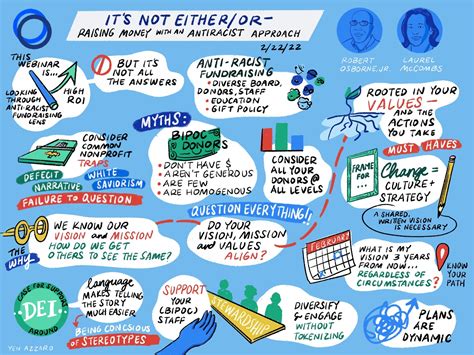 IT'S NOT EITHER/OR-
RAISING MONEY WITH AN ANTIRACIST APPROACH
2/22/22
ROBERT
OSBORNE, JR.
LAUREL
McCOMBS
THIS
WEBINAR
IS...
LOOKING
THROUGH
ANTI-RACIST
FUNDRAISING
LENS
HIGH
ROI
BUT IT'S
NOT ALL
THE ANSWERS
ANTI-RACIST
FUNDRAISING
• DIVERSE BOARD,
DONORS, STAFF
• EDUCATION
• GIFT POLICY
ROOTED IN YOUR
VALUES-
AND THE
ACTIONS
YOU TAKE
CONSIDER
COMMON
NONPROFIT
TRAPS
DEFECIT
NARRATIVE
WHITE
SAVIORISM
FAILURE TO QUESTION
MYTHS:
BIPOC
DONORS
- DON'T HAVE $
- AREN'T GENEROUS
- ARE FEW
- ARE HOMOGENOUS
CONSIDER
ALL YOUR
DONORS @
ALL LEVELS
MUST HAVES
FRAME
FOR...
Change =
CULTURE +
STRATEGY
A SHARED,
WRITTEN VISION
IS NECESSARY
THE
WHY
WE KNOW OUR
VISION and MISSION
HOW DO WE GET
OTHERS TO SEE THE SAME?
QUESTION EVERYTHING!!
DO YOUR
VISION, MISSION
and VALUES
ALIGN?
FEBRUARY
WHAT IS MY
VISION 3 YEARS
FROM NOW...
REGARDLESS OF
CIRCUMSTANCES?
KNOW
YOUR
PATH
CASE FOR SUPPORT
DEI
AROUND
language
MAKES TELLING
THE STORY
MUCH EASIER
BEING CONSCIOUS
OF STEREOTYPES
SUPPORT
YOUR
(BIPOC)
STAFF
STEWARDSHIP
DIVERSIFY
& ENGAGE
WITHOUT
TOKENIZING
PLANS
ARE
DYNAMIC
YEN AZZARO